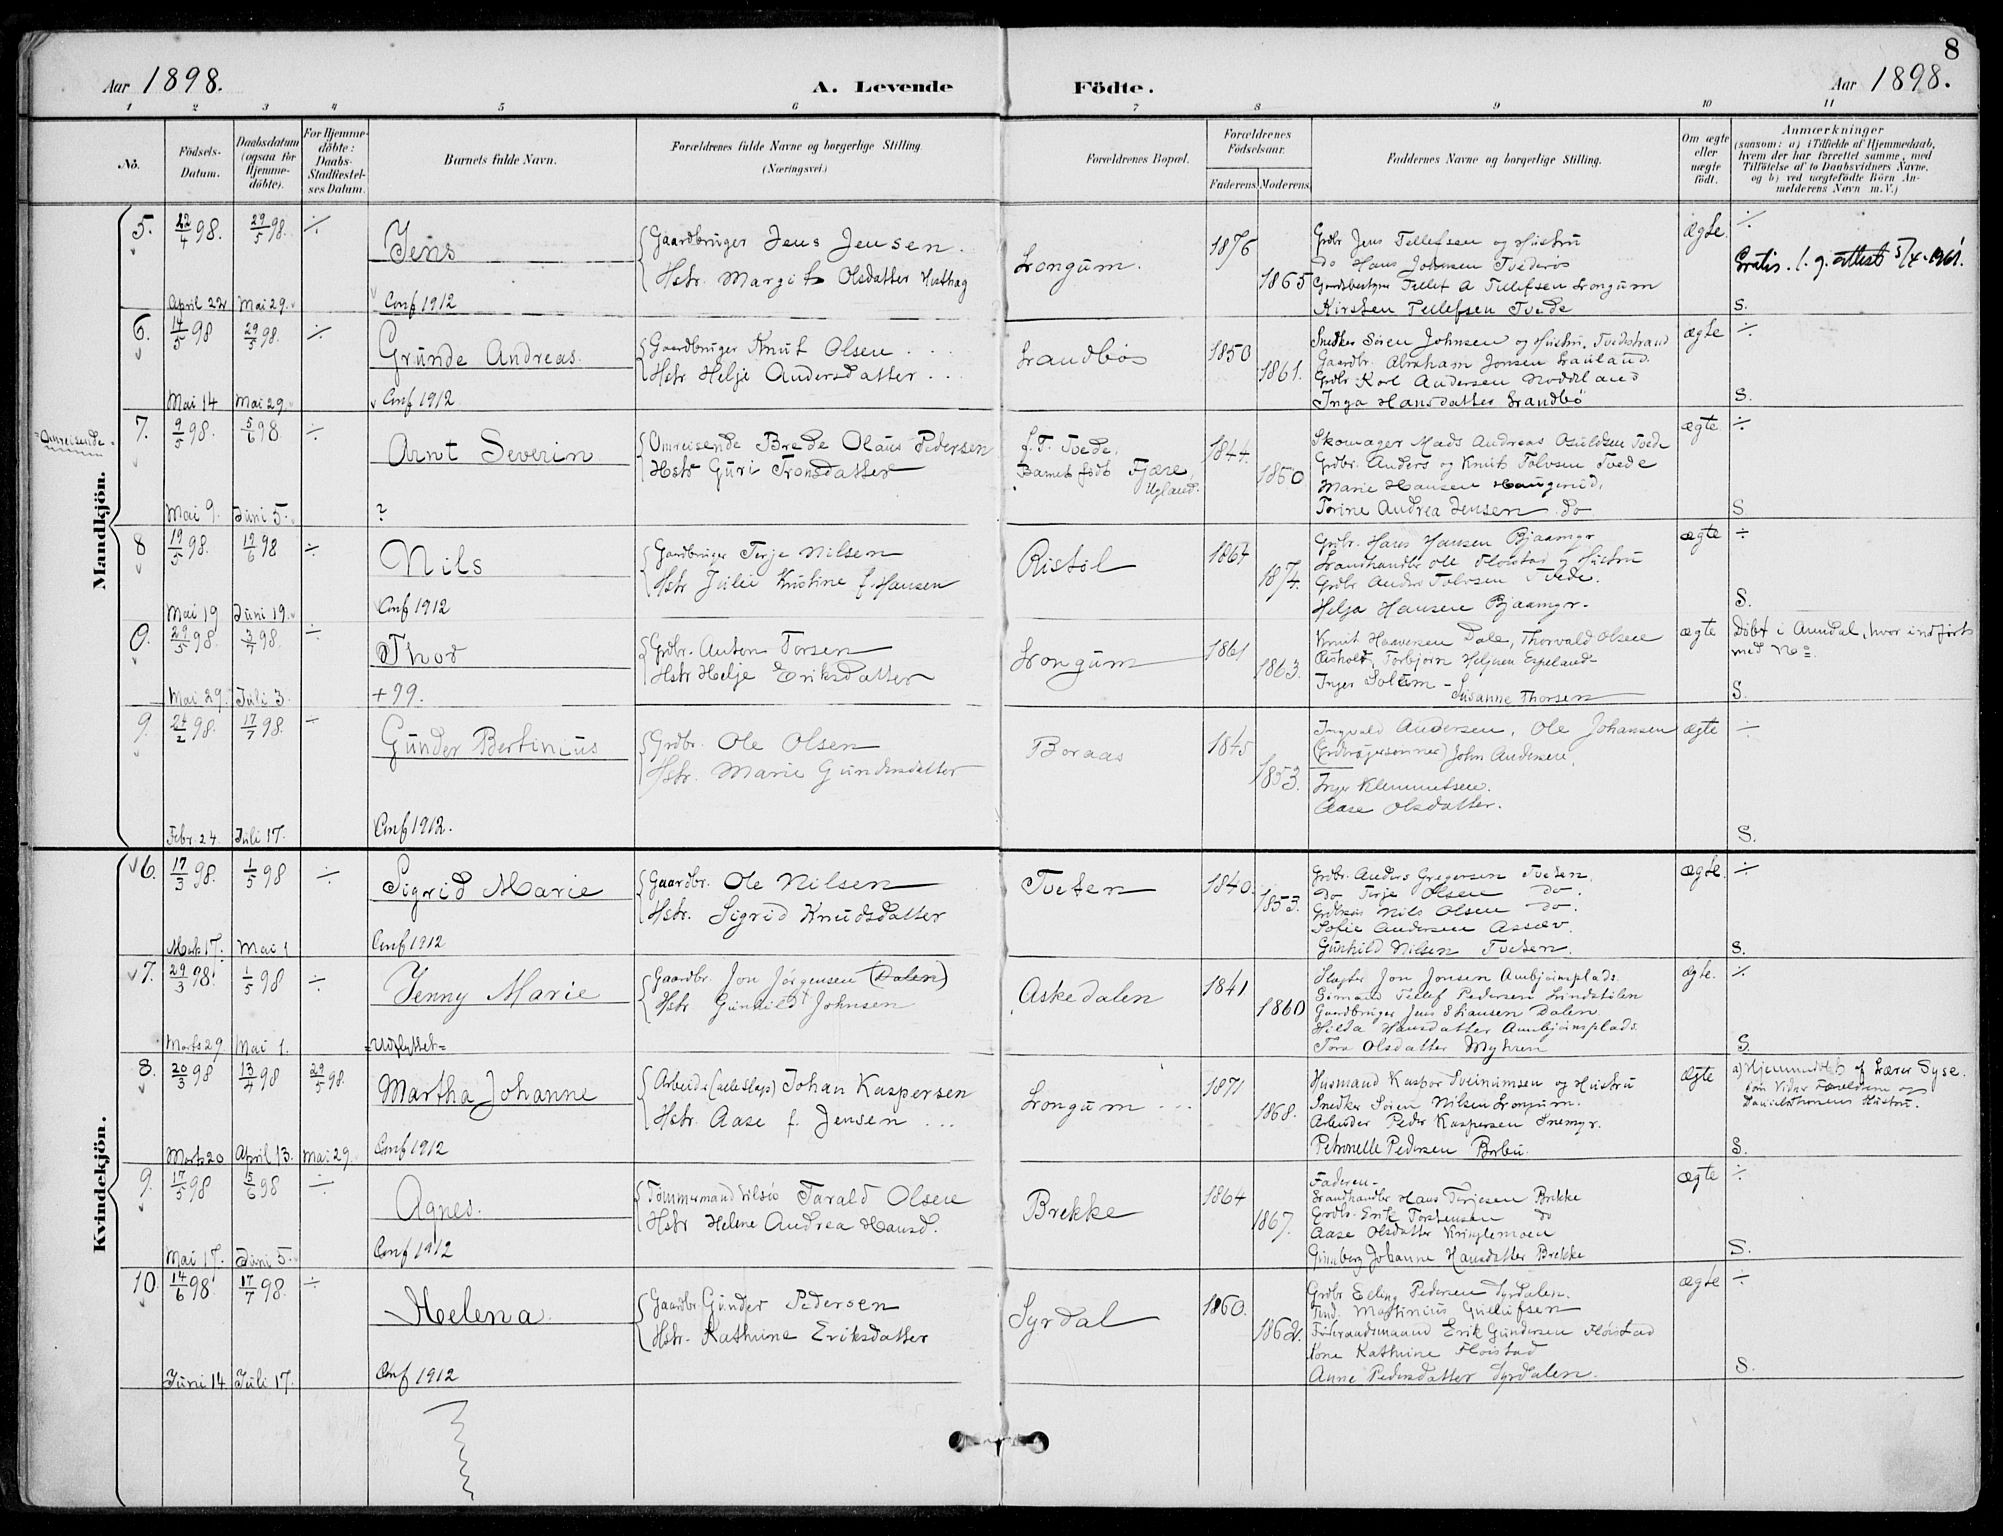 8
Aar 1898.
A. Levende Födte.
Aar 1898.
1 2 3 4 5 6 7 8 9 10 11
Nô.
Födsels-Datum.
Daabsdatum (ogsaa for Hjemme-döbte).
For Hjemme-döbte: Daabs-Stadfæstel-ses Datum.
Barnets fulde Navn.
Forældrenes fulde Navne og borgerlige Stilling.
(Næringsvei.)
Forældrenes Bopæl.
Forældrenes Födselsaar.
Faderens.
Moderens.
Faddernes Navne og borgerlige Stilling.
Om ægte eller uægte födt.
Anmærkninger
(saasom: a) i Tilfælde af Hjemmedaab, hvem der har forrettet samme, med Tilföielse af to Daabsvidners Navne, og b) ved uægtefödte Börn An-melderens Navn m. V.)
Mandkjön.
5. 22/4 98. 29/5 98. ÷
Jens
Gaardbruger Jens Jensen.
Hstr. Margit Olsdatter Hesthag
Longum.
1876
1865
Grdbr Jens Tellefsen og Hustru
do Hans Johnsen Tvederøs
Gaardbestyrer Tellef A Tellefsen Longum
Kirsten Tellefsen Tvede
ægte.
÷
Gratis. l. g. attest 5/4-1961.
April 22 Mai 29. Conf 1912 S.
6. 14/5 98 29/5 98. ÷
Gunde Andreas.
Gaardbruger Knut Olsen
Hstr Helje Andersdatter
Landbøs
1850
1861.
Snedker Sören Johnsen og Hustru, Tvedestrand
Gaardbr. Abraham Jonsen Lauland.
Grdbr Karl Andersen Noddeland
Inga Hansdatter Landbö
ægte ÷
Mai 14 Mai 29. Conf 1912 S.
"Omreisende"
7. 9/5 98. 5/6 98 ÷
Arnt Severin
Omreisende Brede Olaus Pedersen
Hstr Guri Tronsdatter
f. T. Tvede.
Barnet født Fjære, Ugland.
1844.
1850
Skomager Mads Andreas Osuldsen Tvede
Grdbr. Anders og Knut Tolvsen Tvede
Marie Hansen Haugerød,
Torine Andrea Jensen do
ægte ÷
Mai 9. Juni 5. ? S
8 19/5 98. 19/6 98 ÷
Nils
Gardbruger Terje Nilsen
Hstr Julie Kristine f. Hansen
Ristöl
1867
1874.
Grdbr. Hans Hansen Bjaamyr
Landhandler Ole Floistad og Hustru
Grdbr Anders Tolvsen Tvede.
Helga Hansen Bjaamyr.
ægte ÷
Mai 19 Juni 19. Conf 1912 S.
0. 29/5 98 3/7 98. ÷
Thor
Grdbr. Anton Torsen
Hstr Helje Eriksdatter
Longum
1861
1863.
Knut Haaversen Dale, Thorvald Olsen
Risholt, Torbjørn Heljesen Espeland
Inger Soltem - Susanne Thorsen
ægte
Döbt i Arendal, hvor indfört med No.
Mai 29. Juli 3. +99. S.
9. 24/2 98. 17/7 98. ÷
Gunder Bertinius
Grdbr. Ole Olsen
Hstr. Marie Gundersdatter
Boraas
1845
1853.
Ingvald Andersen, Ole Johansen
John Andersen,
Inger Klemmetsen.
Aase Olsdatter.
ægte ÷
Febr. 24 Juli 17. Conf 1912. S.
Kvindekjön.
6. 17/3 98. 1/5 98 ÷
Sigrid Marie
Gaardbr. Ole Nilsen
Hstr. Sigrid Knudsdatter
Tveten
1840.
1853.
Grdbr. Anders Gregersen Tveten.
do Terje Olsen do.
Nils Olsen do.
Sofie Andersen Assæv.
Gunhild Nilsen Tveten.
ægte. ÷
Marts 17. Mai 1 Conf 1912 S.
7. 29/3 98. 1/5 98 ÷
Jenny Marie
Gaardbr. Jon Jørgensen (Dalen)
Hstr Gunhild Johnsen
Askedalen
1841
1860
Slagter Jon Jonsen Ambjørnsplads.
Sömand Tellef Pedersen Lindstølen
Gaardbruger Jens Hansen Dalen
Hilda Hansdatter Ambjørnsplads.
Tora Olsdatter Myhren
ægte. ÷
Marts 29. Mai 1. =Udflyttet= S.
8. 20/3 98 13/4 98 29/5 98.
Martha Johanne
Arbeids Johan Kaspersen
Hstr. Aase f. Jensen
Longum
1871
1868.
Husmand Kaspar Sveinumsen og Hustru
Snedker Sören Nilsen Longum.
Arbeider Peder Kaspersen Snemyr.
Petronelle Pedersen Barbu.
ægte
a) Hjemmedöbt af Lærer Syse.
som Vidner Forældrene og
Danielsens Hustru.
Marts 20 April 13. Mai 29. Conf 1912 S.
9. 17/5 98 5/6 98 ÷
Agnes.
Tömmermand Tarald Olsen
Hstr Helene Andrea Hansd.
Brekke
1864
1867.
Faderen-
Landhandler Hans Terjesen Brekke
Grdbr. Erik Torstensen do
Aase Olsdatter Kringlemoen
Gunborg Johanne Hansdatter Brekke
ægte ÷
Mai 17. Juni 5. Conf 1912 S.
10. 14/6 98 17/7 98. ÷
Helena.
Gaardbr. Gunder Pedersen
Hstr. Kathrine Eriksdatter
Syrdal
1860.
1862.
Grdbr Elling Pedersen Syrdalen.
Martinius Gullufsen
Föderaadsmand Erik Gundersen Floistad
Kone Kathrine Floistad
Anne Pedersdatter Syrdalen.
ægte ÷
Juni 14 Juli 17. Conf 1912 S.